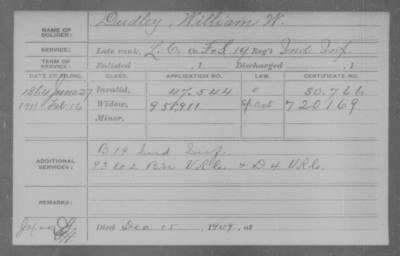 NAME OF SOLDIER: Dudley, William W.
SERVICE: Late rank, L.C. Co. F&S, 19 Reg't Ind Inf.
TERM OF SERVICE: Enlisted , 1 Discharged , 1
DATE OF FILING. CLASS. APPLICATION NO. LAW. CERTIFICATE NO.
1864 June 27 Invalid, 47.544 30.766
1910 Feb 16 Widow, 951.911 720169
Minor,
ADDITIONAL SERVICES: B 19 Ind Inf.
93 Co 2 Btn V.R.C. & D 4 V.R.C.
REMARKS:
Died Dec 15, 1909, at